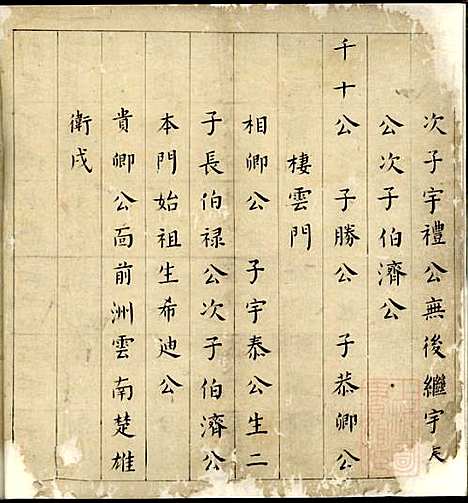 次子宇禮公無後繼宇天
公次子伯濟公
千十公 子勝公 子恭卿公
棲雲門
相卿公 子宇泰公生二
子長伯禄公次子伯濟公
本門始祖生希迪公
貴卿公啚前洲雲南楚雄
衛戍